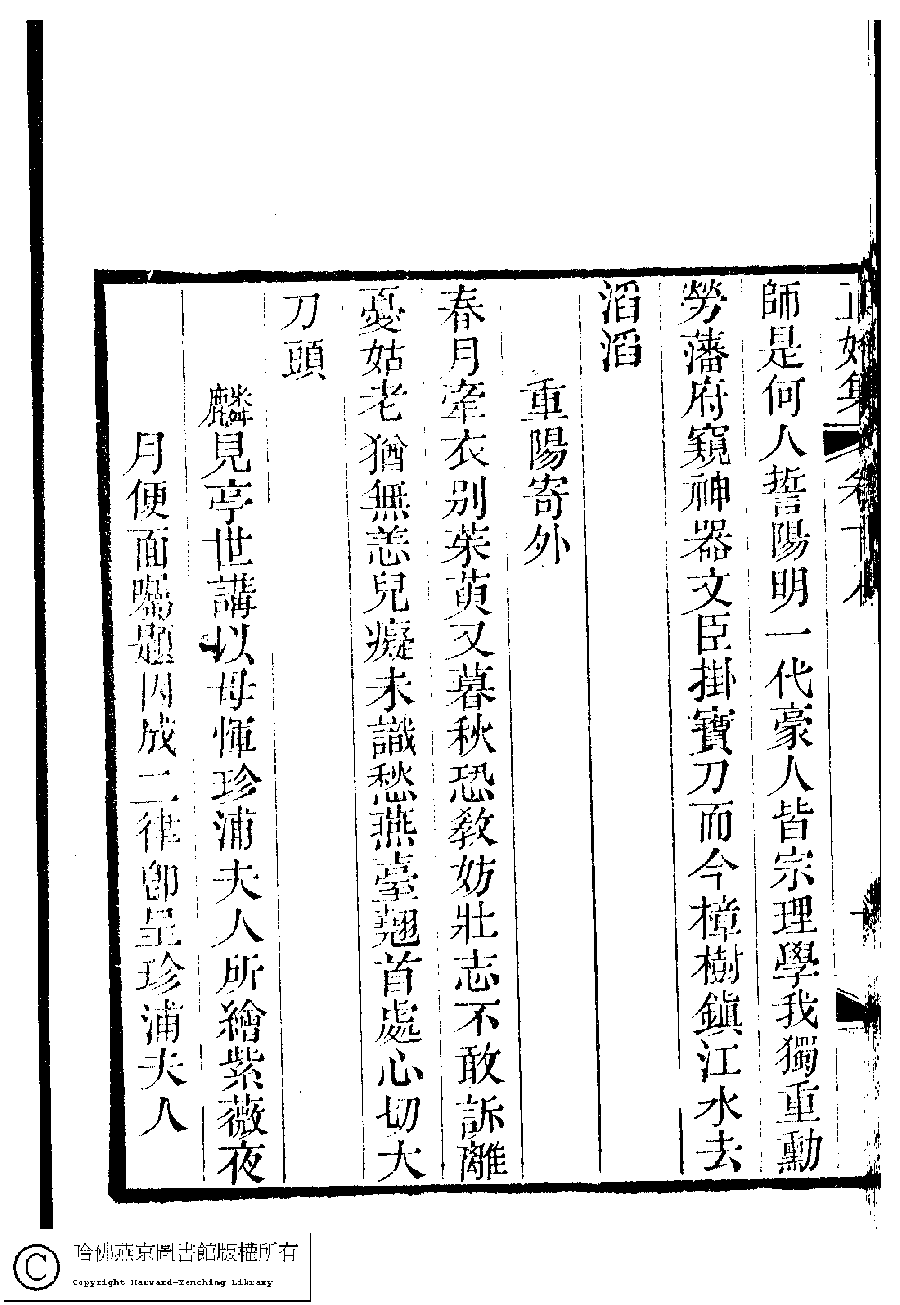 正始集 卷十八
師是何人誓陽明一代豪人皆宗理學我獨重勳
勞藩府窺神器文臣掛寶刀而今樟樹鎮江水去
滔滔
重陽寄外
春月牽衣別茱萸又暮秋恐敎妨壯志不敢訴離
憂姑老猶無恙兒癡未識愁燕臺翹首處心切大
刀頭
麟見亭世講以母惲珍浦夫人所繪紫薇夜
月便面囑題因成二律卽呈珍浦夫人
哈佛燕京圖書館版權所有
Copyright Harvard-Yenching Library